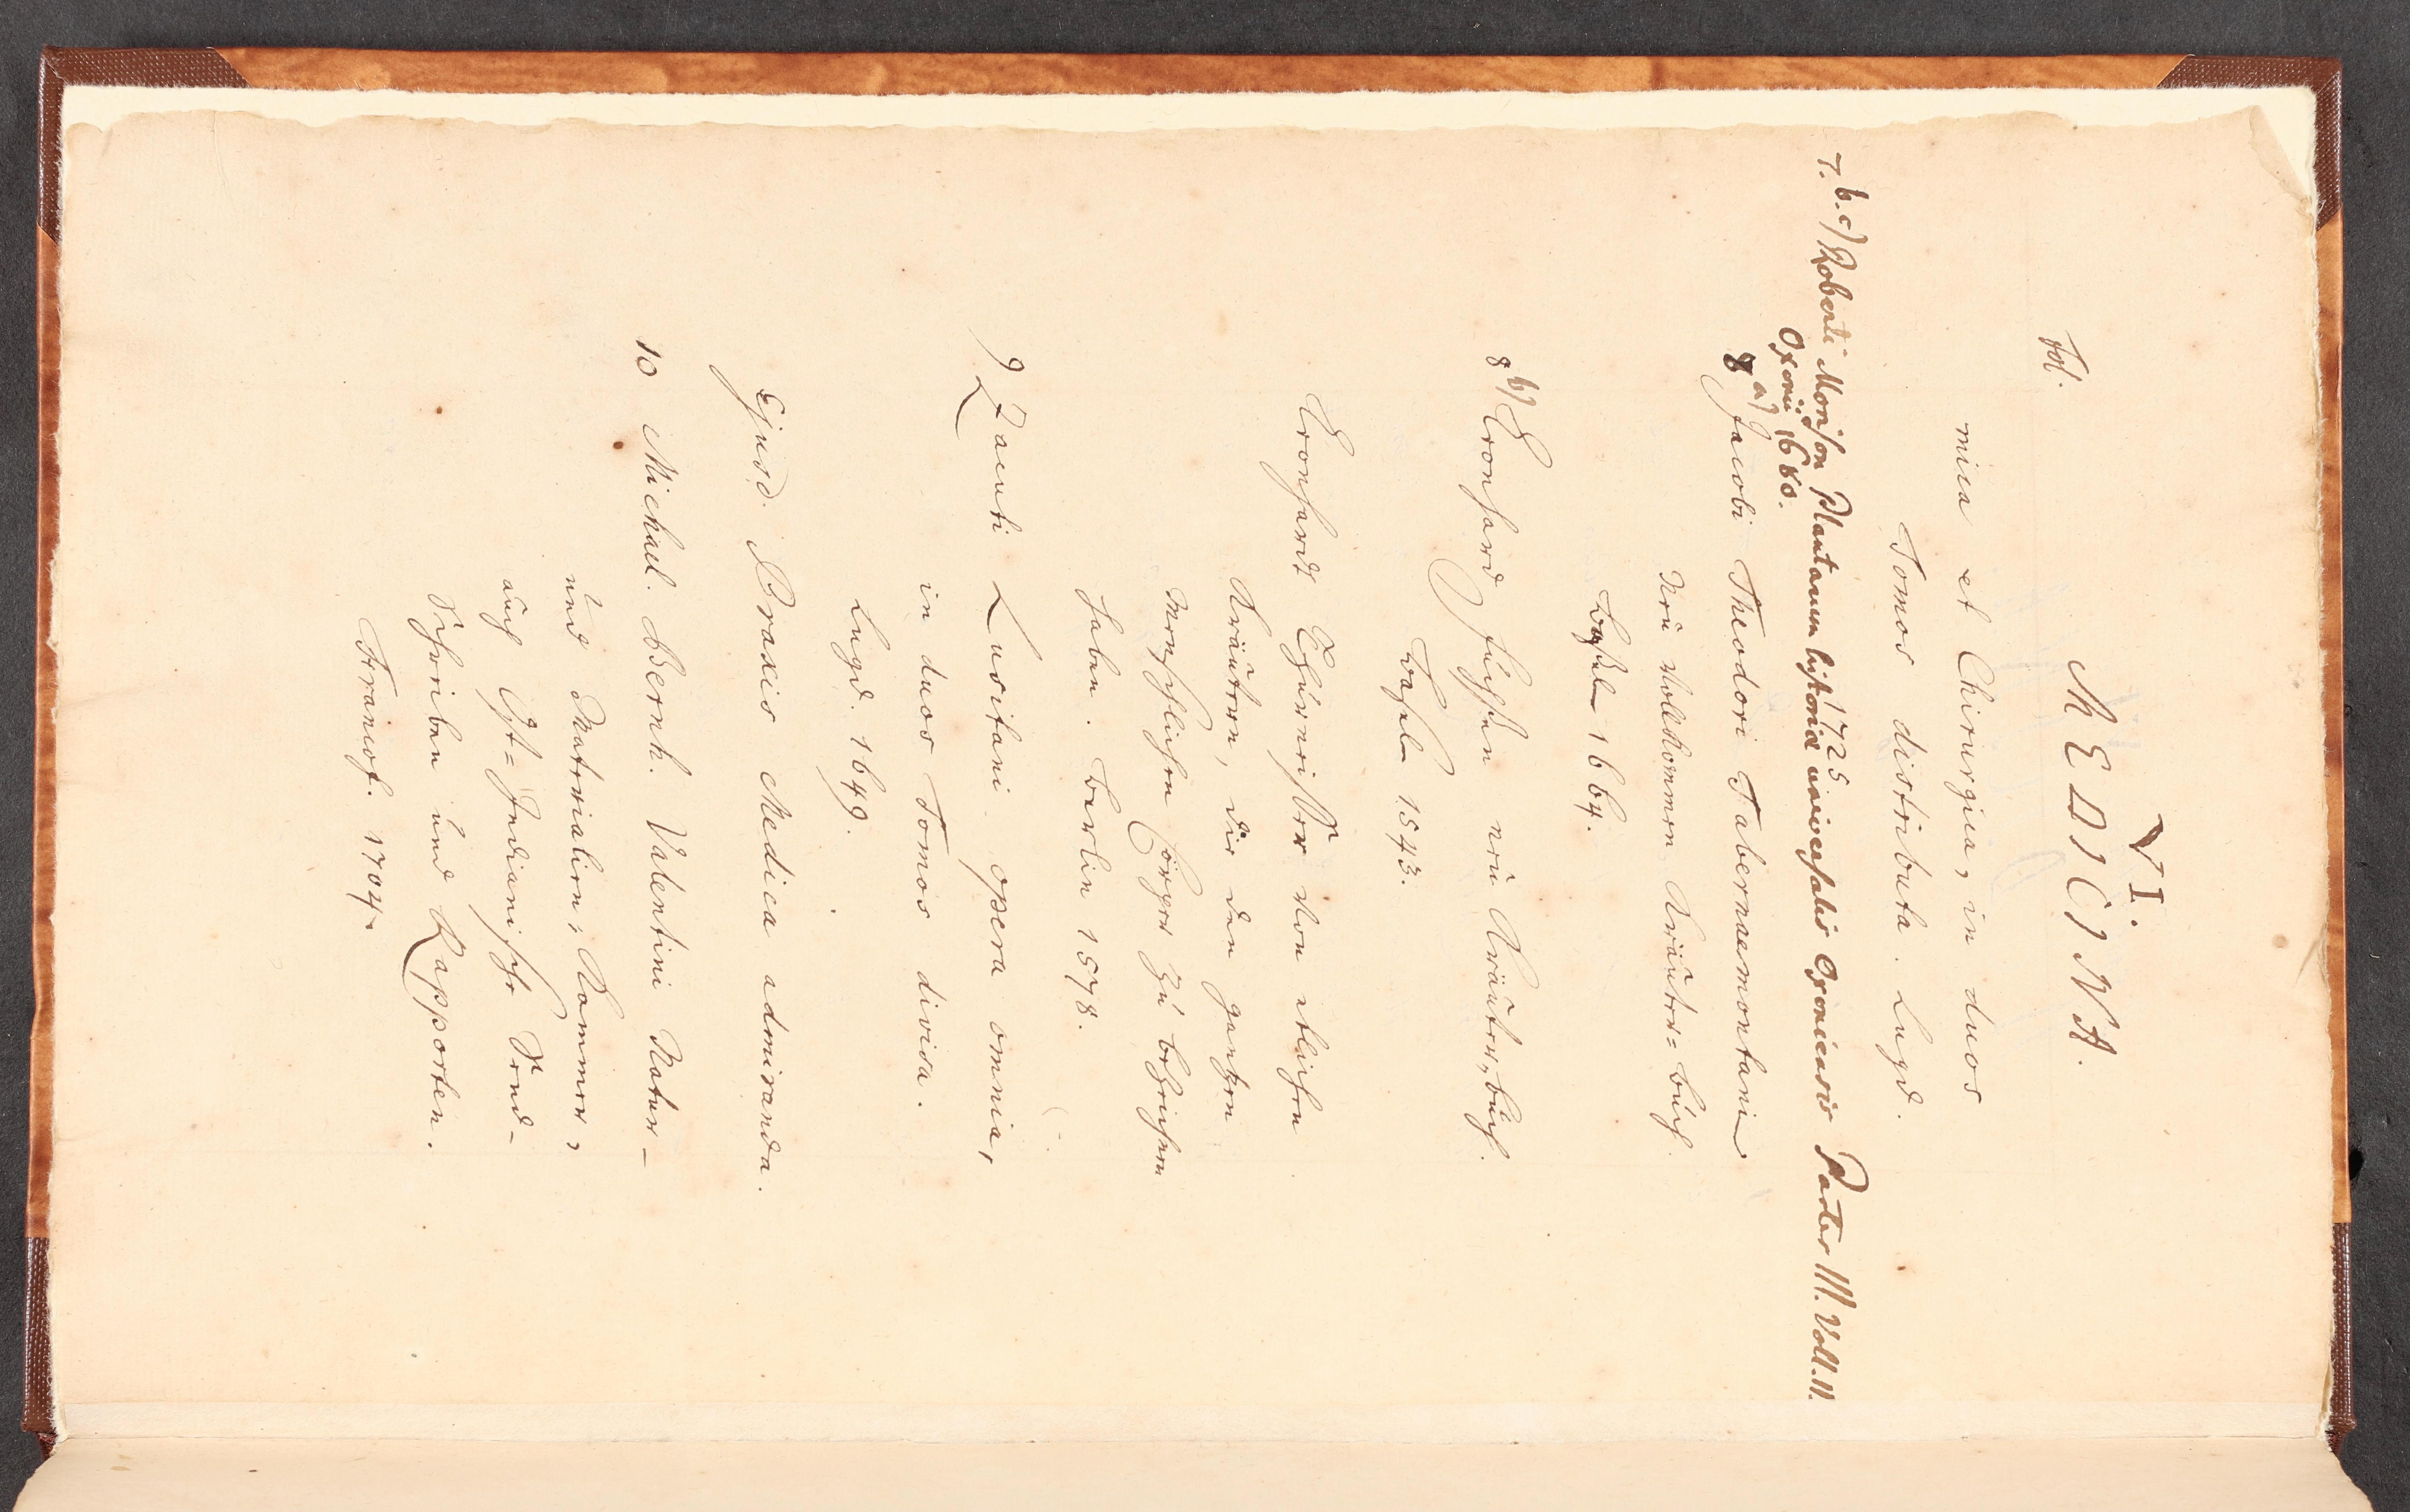 VI.
MEDICINA.
Fol.
mica et Chirurgica, in duos
Tomos distributa. Lugd.
1725
7. b. c) Roberti Morison Plantarum historiæ universalis Oxoniensis Partes III. Voll. II.
Oxonii 1680.
8 a) Jacobi Theodori Tabernaemontani
Neu vollkommen Kräuter=buch
Basel 1664.
8 b) Leonhard Fuchsen neu Kräuter,buch.
Basel 1543.
Leonhardt Thurneisser von etlichen
Kräutern, die den gantzen
Menschlichen Cörper zu bezeichen
haben. Berlin 1578.
9 Zacuti Lusitani opera omnia,
in duos Tomos divisa.
Lugd. 1649.
Ejusd. Praxis Medica admiranda.
10 Michael. Bernh. Valentini Natur-
und Materialien, Kammer,
auch Ost=Indianische Send-
Schreiben und Rapporten.
Francof. 1704.